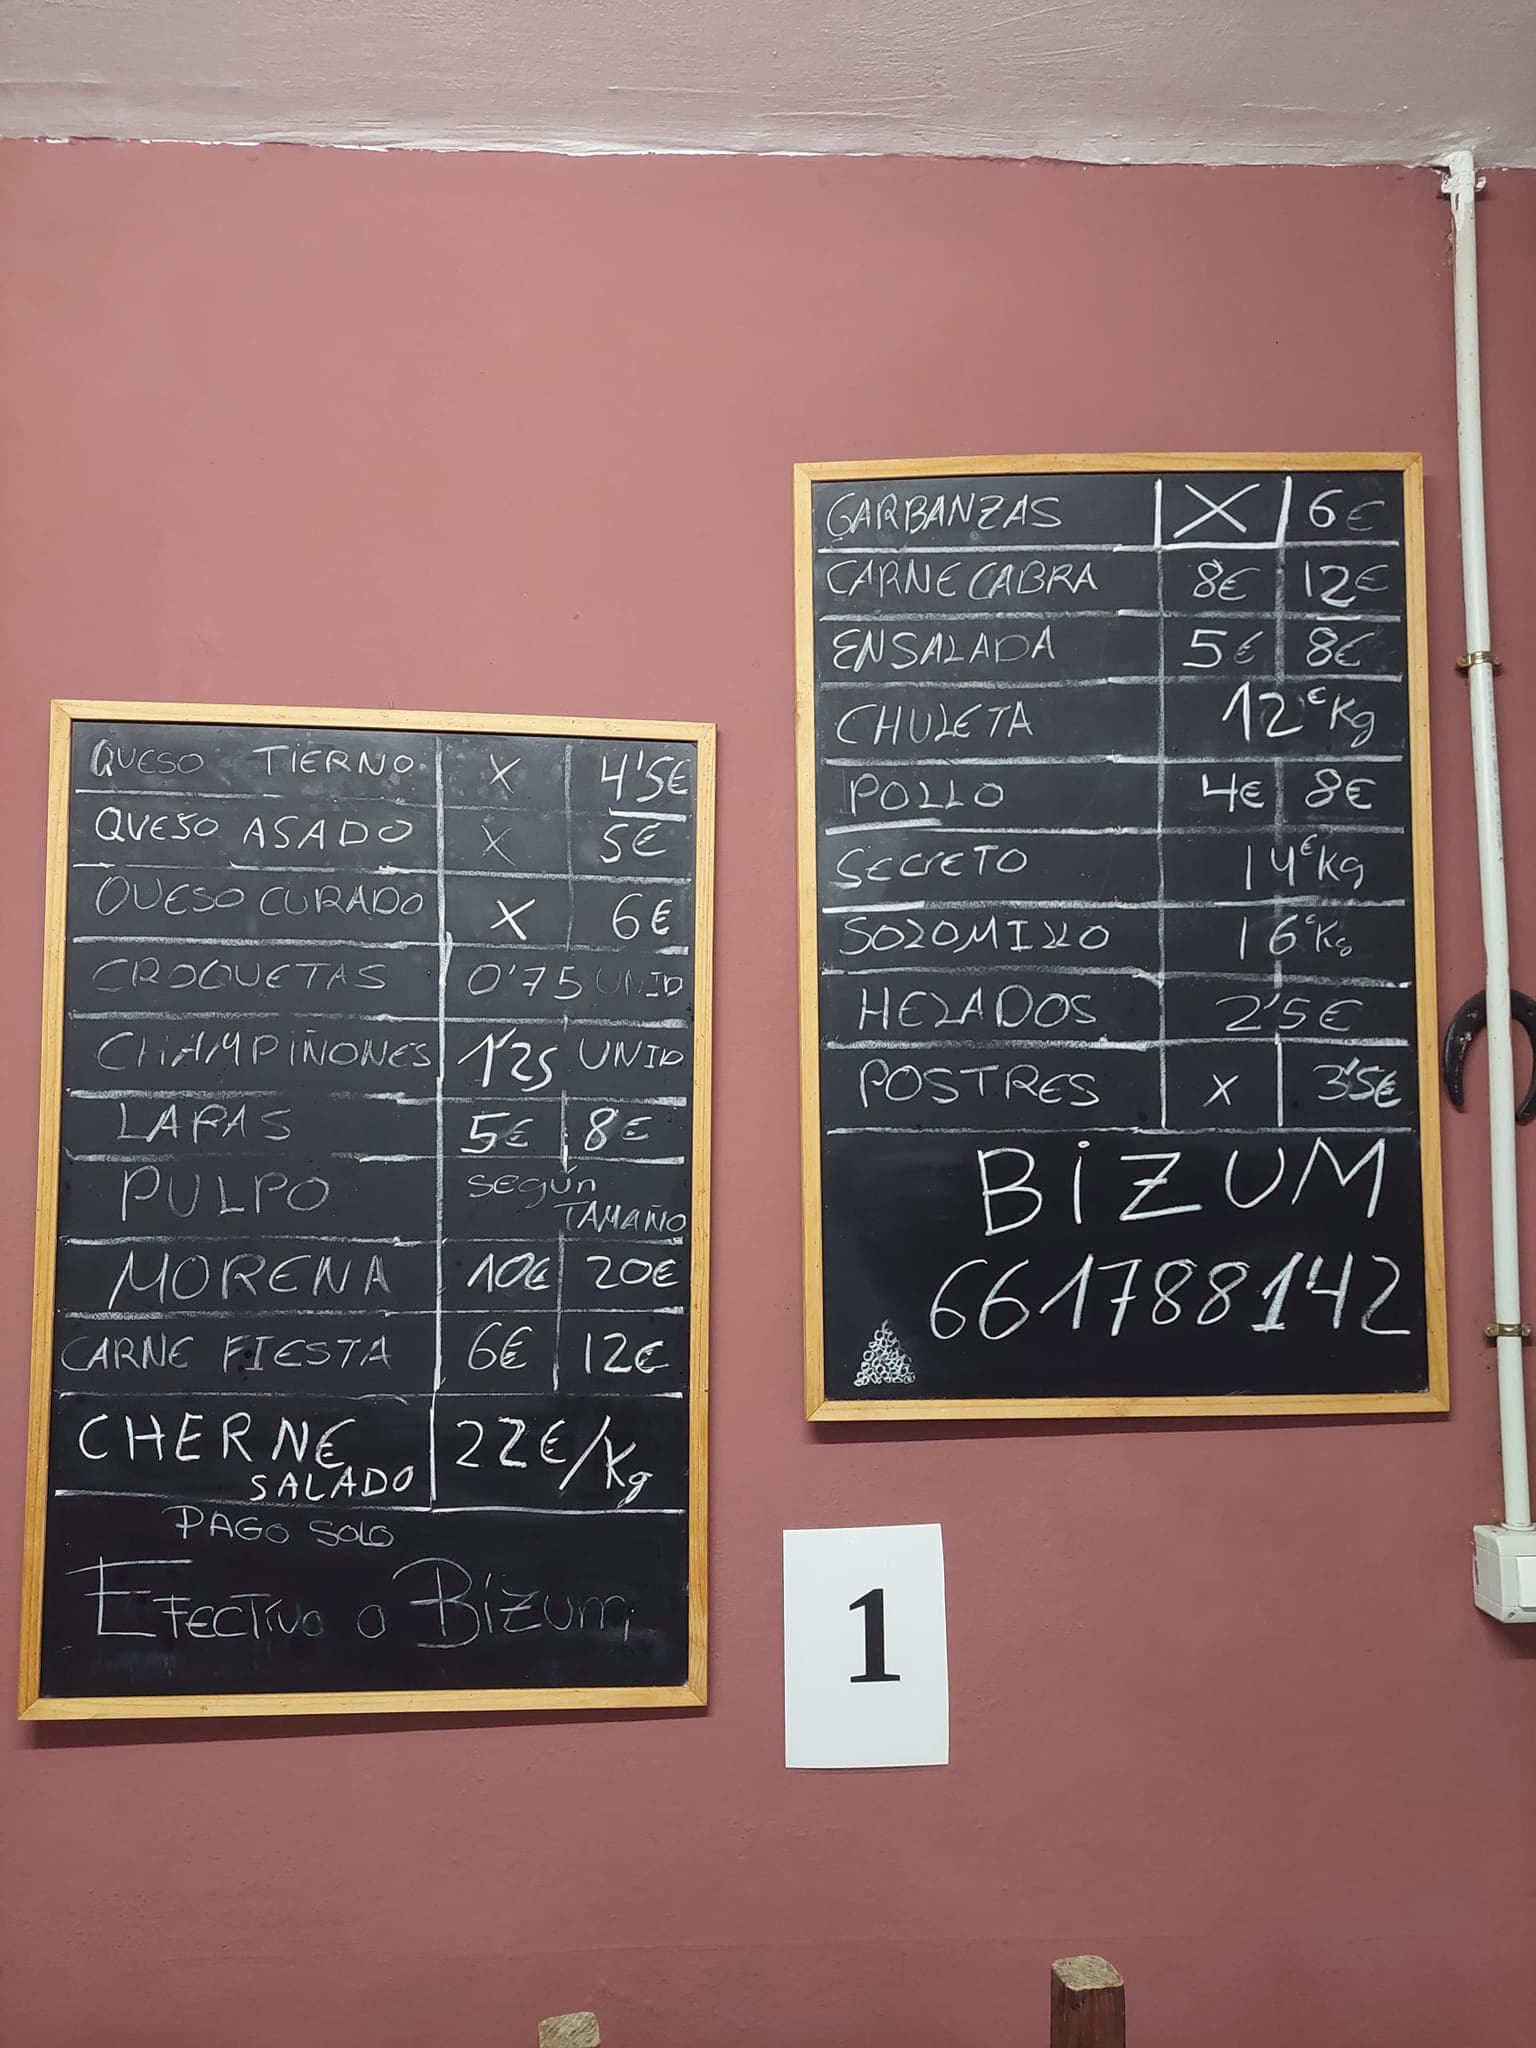 QUESO TIERNO X 4'5€
QUESO ASADO X 5€
QUESO CURADO X 6€
CROQUETAS 0'75 UNID
CHAMPIÑONES 1'25 UNID
LAPAS 5€ 8€
PULPO según
TAMAÑO
MORENA 10€ 20€
CARNE FIESTA 6€ 12€
CHERNE 22€/Kg
SALADO
PAGO SOLO
EFECTIVO o Bizum
GARBANZAS X 6€
CARNE CABRA 8€ 12€
ENSALADA 5€ 8€
CHULETA 12€Kg
POLLO 4€ 8€
SECRETO 14€Kg
SOLOMILLO 16€Kg
HELADOS 2'5€
POSTRES X 3'5€
BiZUM
661788142
1